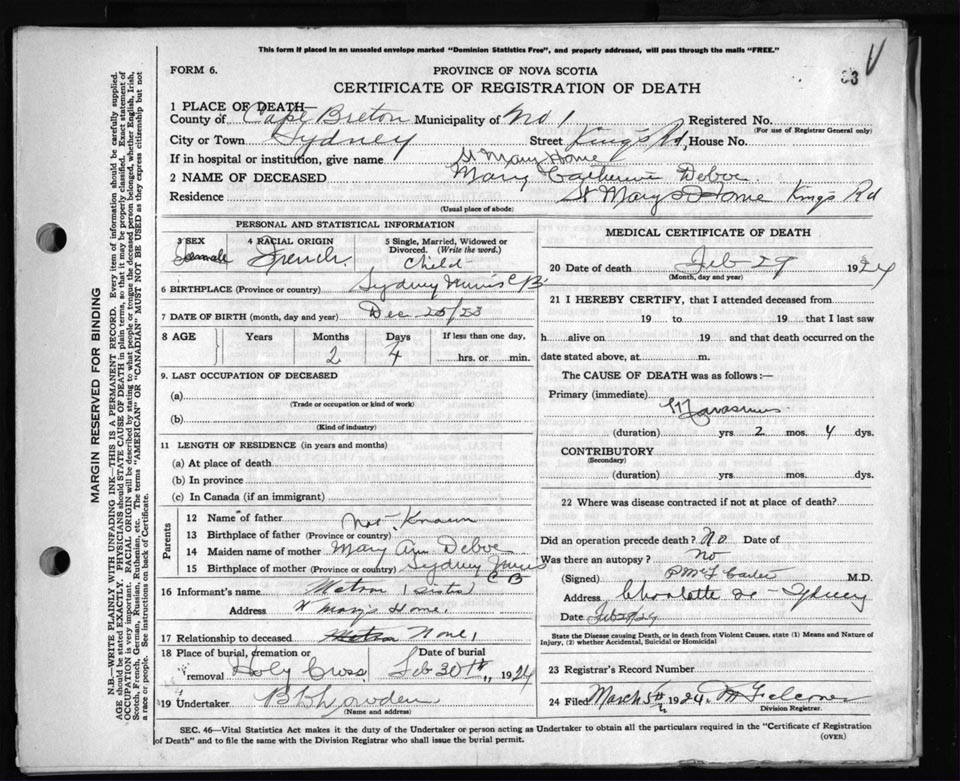 This form if placed in an unsealed envelope marked "Dominion Statistics Free", and properly addressed, will pass through the mails "FREE."
FORM 6.
PROVINCE OF NOVA SCOTIA
CERTIFICATE OF REGISTRATION OF DEATH
1 PLACE OF DEATH—
County of Cape Breton Municipality of No 1 Registered No.
(For use of Registrar General only)
City or Town Sydney Street King's Rd, House No.
If in hospital or institution, give name St Mary Home
2 NAME OF DECEASED Mary Catherine Deboe
Residence St Mary's Home King's Rd
(Usual place of abode)
PERSONAL AND STATISTICAL INFORMATION
3 SEX Female
4 RACIAL ORIGIN French.
5 Single, Married, Widowed or Divorced. (Write the word.) Child
6 BIRTHPLACE (Province or country) Sydney Mines C B.
7 DATE OF BIRTH (month, day and year) Dec 25/23
8 AGE Years Months Days If less than one day,
2 4 hrs. or min.
9. LAST OCCUPATION OF DECEASED
(a)
(Trade or occupation or kind of work)
(b)
(Kind of industry)
11 LENGTH OF RESIDENCE (in years and months)
(a) At place of death
(b) In province
(c) In Canada (if an immigrant)
Parents
12 Name of father Not Known
13 Birthplace of father (Province or country)
14 Maiden name of mother Mary Ann Deboe
15 Birthplace of mother (Province or country) Sydney Mines
C B
16 Informant's name Matron Sister
Address St Mary's Home,
17 Relationship to deceased Matron None,
18 Place of burial, cremation or removal Holy Cross Date of burial Feb 30th, 1924
19 Undertaker
(Name and address)
MEDICAL CERTIFICATE OF DEATH
20 Date of death Feb 29 1924
(Month, day and year)
21 I HEREBY CERTIFY, that I attended deceased from
19 to 19 that I last saw
h alive on 19 and that death occurred on the
date stated above, at m.
The CAUSE OF DEATH was as follows:—
Primary (immediate) Marasmus
(duration) yrs. 2 mos. 4 dys.
CONTRIBUTORY
(Secondary)
(duration) yrs. mos. dys.
22 Where was disease contracted if not at place of death?
Did an operation precede death? No Date of
Was there an autopsy? No
(Signed) M.D.
Address Charlotte St - Sydney
Date Feb 29/24
State the Disease causing Death, or in death from Violent Causes, state (1) Means and Nature of Injury, (2) whether Accidental, Suicidal or Homicidal
23 Registrar's Record Number
24 Filed March 5th 1924.
Division Registrar.
SEC. 46—Vital Statistics Act makes it the duty of the Undertaker or person acting as Undertaker to obtain all the particulars required in the "Certificate of Registration
of Death" and to file the same with the Division Registrar who shall issue the burial permit.
(OVER)
MARGIN RESERVED FOR BINDING
N.B—WRITE PLAINLY WITH UNFADING INK—THIS IS A PERMANENT RECORD. Every item of information should be carefully supplied.
AGE should be stated EXACTLY. PHYSICIANS should STATE CAUSE OF DEATH in plain terms, so that it may be properly classified. Exact statement of
OCCUPATION is very important. RACIAL ORIGIN will be described by stating to what people or tongue the deceased person belonged, whether English, Irish,
Scotch, French, German, Russian, Ruthenian, etc. The terms "AMERICAN" OR "CANADIAN" MUST NOT BE USED as they express citizenship but not
a race or people. See instructions on back of Certificate.